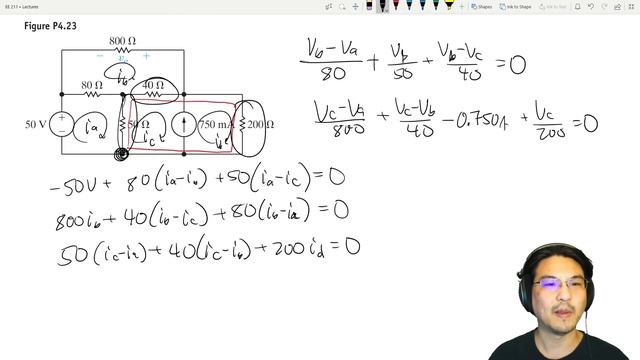 EE 211 • Lectures
Shapes
Ink to Shape
Ink to Text
Figure P4.23
800 Ω
−
+
i_b
80 Ω
40 Ω
50 V
+
−
i_a
50 Ω
i_c
750 mA
200 Ω
-50V + 80(i_a-i_b) + 50(i_a-i_c) = 0
800i_b + 40(i_b-i_c) + 80(i_b-i_a) = 0
50(i_c-i_a) + 40(i_c-i_b) + 200i_d = 0
(V_b-V_a)/80 + V_b/50 + (V_b-V_c)/40 = 0
(V_c-V_a)/800 + (V_c-V_b)/40 - 0.750A + V_c/200 = 0